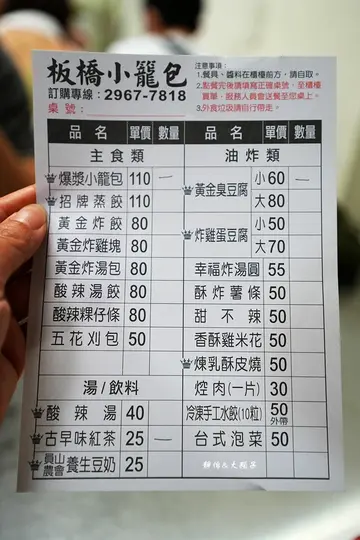 板橋小籠包
訂購專線：2967-7818
桌號：
注意事項：
1.餐具、醬料在櫃檯前方，請自取。
2.點餐完後請填寫正確桌號，至櫃檯
買單，服務人員會送餐至您桌上。
3.外食垃圾請自行帶走。
品名 單價 數量
主食類
爆漿小籠包 110 一
招牌蒸餃 110
黃金炸餃 80
黃金炸雞塊 80
黃金炸湯包 80
酸辣湯餃 80
酸辣粿仔條 80
五花刈包 50
湯/飲料
酸辣湯 40
古早味紅茶 25 一
員山農會 養生豆奶 25
品名 單價 數量
油炸類
黃金臭豆腐 小60 一
大80
炸雞蛋豆腐 小50
大70
幸福炸湯圓 55
酥炸薯條 50
甜不辣 50
香酥雞米花 50
煉乳酥皮燒 50
焢肉(一片) 30
冷凍手工水餃(10粒) 50
外帶
台式泡菜 50